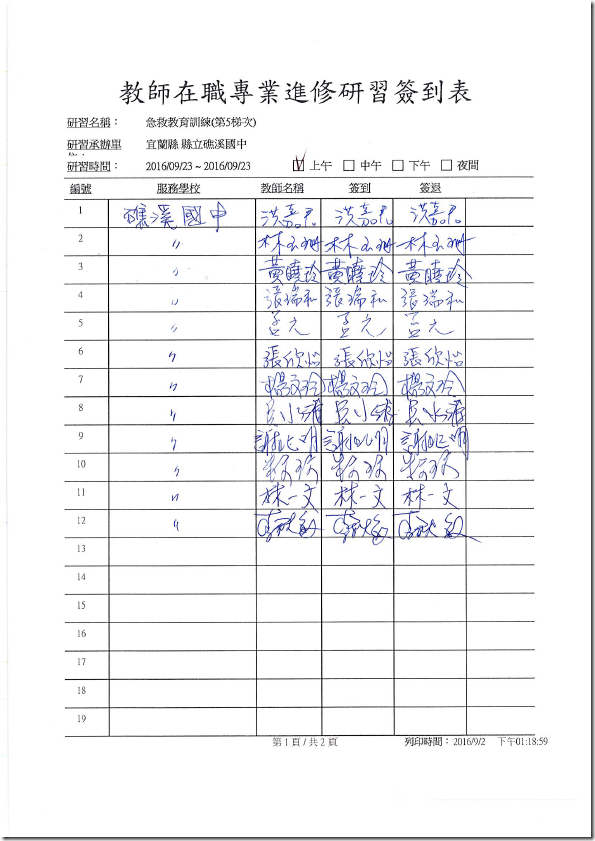 教師在職專業進修研習簽到表
研習名稱： 急救教育訓練(第5梯次)
研習承辦單 宜蘭縣 縣立礁溪國中
研習時間： 2016/09/23 ~ 2016/09/23 ☑ 上午 □ 中午 □ 下午 □ 夜間
編號 服務學校 教師名稱 簽到 簽退
1 礁溪國中 洪嘉君 洪嘉君 洪嘉君
2 〃 林玉珊 林玉珊 林玉珊
3 〃 黃曉玲 黃曉玲 黃曉玲
4 〃 張瑞和 張瑞和 張瑞和
5 〃
6 〃 張欣怡 張欣怡 張欣怡
7 〃 楊文玲 楊文玲 楊文玲
8 〃
9 〃
10 〃
11 〃 林一文 林一文 林一文
12 〃
13
14
15
16
17
18
19
第 1 頁 / 共 2 頁 列印時間： 2016/9/2 下午01:18:59